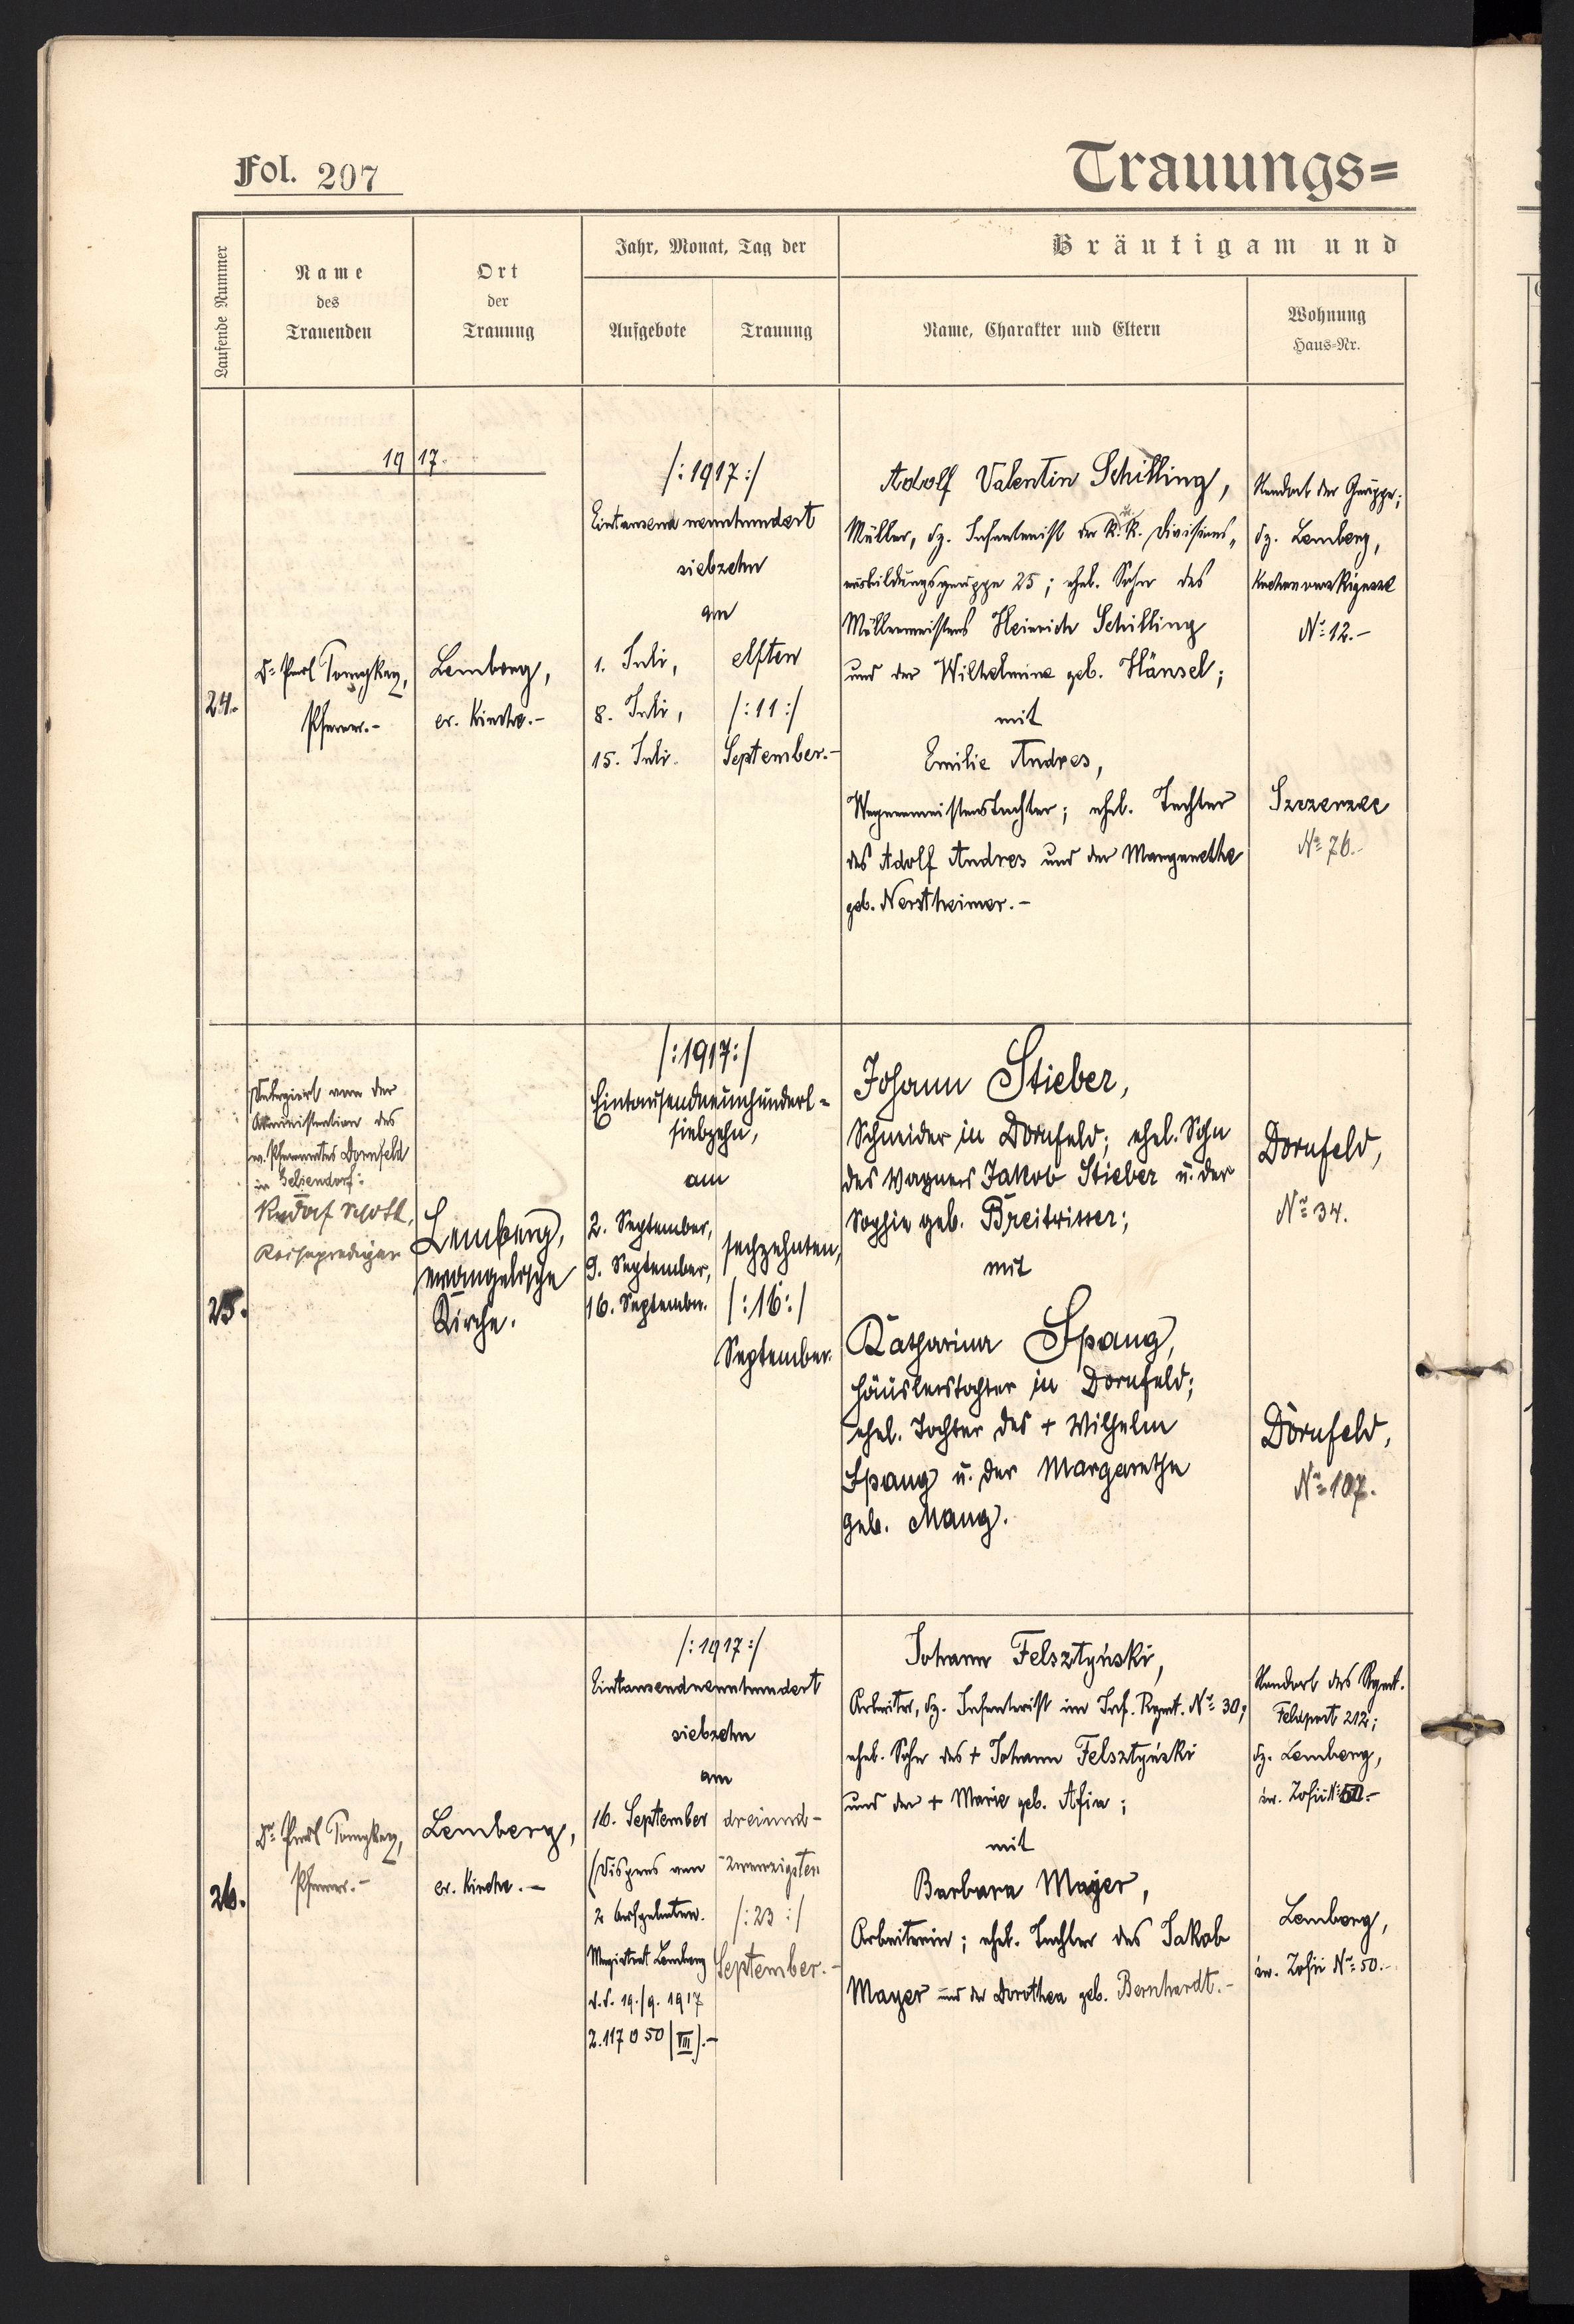 Fol. 207
Trauungs=
Laufende Nummer
Name
des
Trauenden
Ort
der
Trauung
Jahr, Monat, Tag der
Aufgebote
Trauung
Bräutigam und
Name, Charakter und Eltern
Wohnung
Haus=Nr.
1917.
24.
Pfarrer.-
Lemberg,
ev. Kirche.-
/:1917:/
Eintausend neunhundert
siebzehn
am
1. Juli,
8. Juli,
15. Juli.
elften
/:11:/
September.-
Adolf Valentin Schilling,
Müller, dz. Infanterist der k.k. Divisions„
ausbildungsgruppe 25; ehel. Sohn des
Müllermeisters Heinrich Schilling
und der Wilhelmine geb. Hänsel;
mit
Emilie Andres,
Wagnermeisterstochter; ehel. Tochter
des Adolf Andres und der Margarethe
geb. Nerstheimer.-
Standort der Gruppe;
dz. Lemberg,
No 12.-
Szczerzec
No 76.-
25.
Delegiert von der
Administration des
ev. Pfarramtes Dornfeld
in
Reiseprediger
Lemberg,
evangelische
Kirche.
/:1917:/
Eintausendneunhundert=
siebzehn,
am
2. September,
9. September,
16. September.
sechzehnten,
/:16:/
September.
Johann Stieber,
Schneider in Dornfeld; ehel. Sohn
des Wagners Jakob Stieber u. der
Sophie geb. Breitwisser;
mit
Katharina Spang,
Häuslerstochter in Dornfeld;
ehel. Tochter des + Wilhelm
Spang u. der Margarethe
geb. Mang.
Dornfeld,
No 34.
Dornfeld,
No 107.
26.
Pfarrer.-
Lemberg,
ev. Kirche.-
/:1917:/
Eintausendneunhundert
siebzehn
am
16. September
(Dispens von
2 Aufgeboten.
Magistrat Lemberg
v. 19./9. 1917
Z. 117050/VII).-
dreiund-
zwanzigsten
/:23:/
September.-
Johann Felsztyński,
Arbeiter, dz. Infanterist im Inf. Regmt. No 30;
ehel. Sohn des + Johann Felsztyński
und der + Marie geb. Afia;
mit
Barbara Mayer,
Arbeiterin; ehel. Tochter des Jakob
Mayer und der Dorothea geb. Bernhardt.-
Standort des Regmt.
Feldpost 212;
dz. Lemberg,
św. Zofii No 50.-
Lemberg,
św. Zofii No 50.-